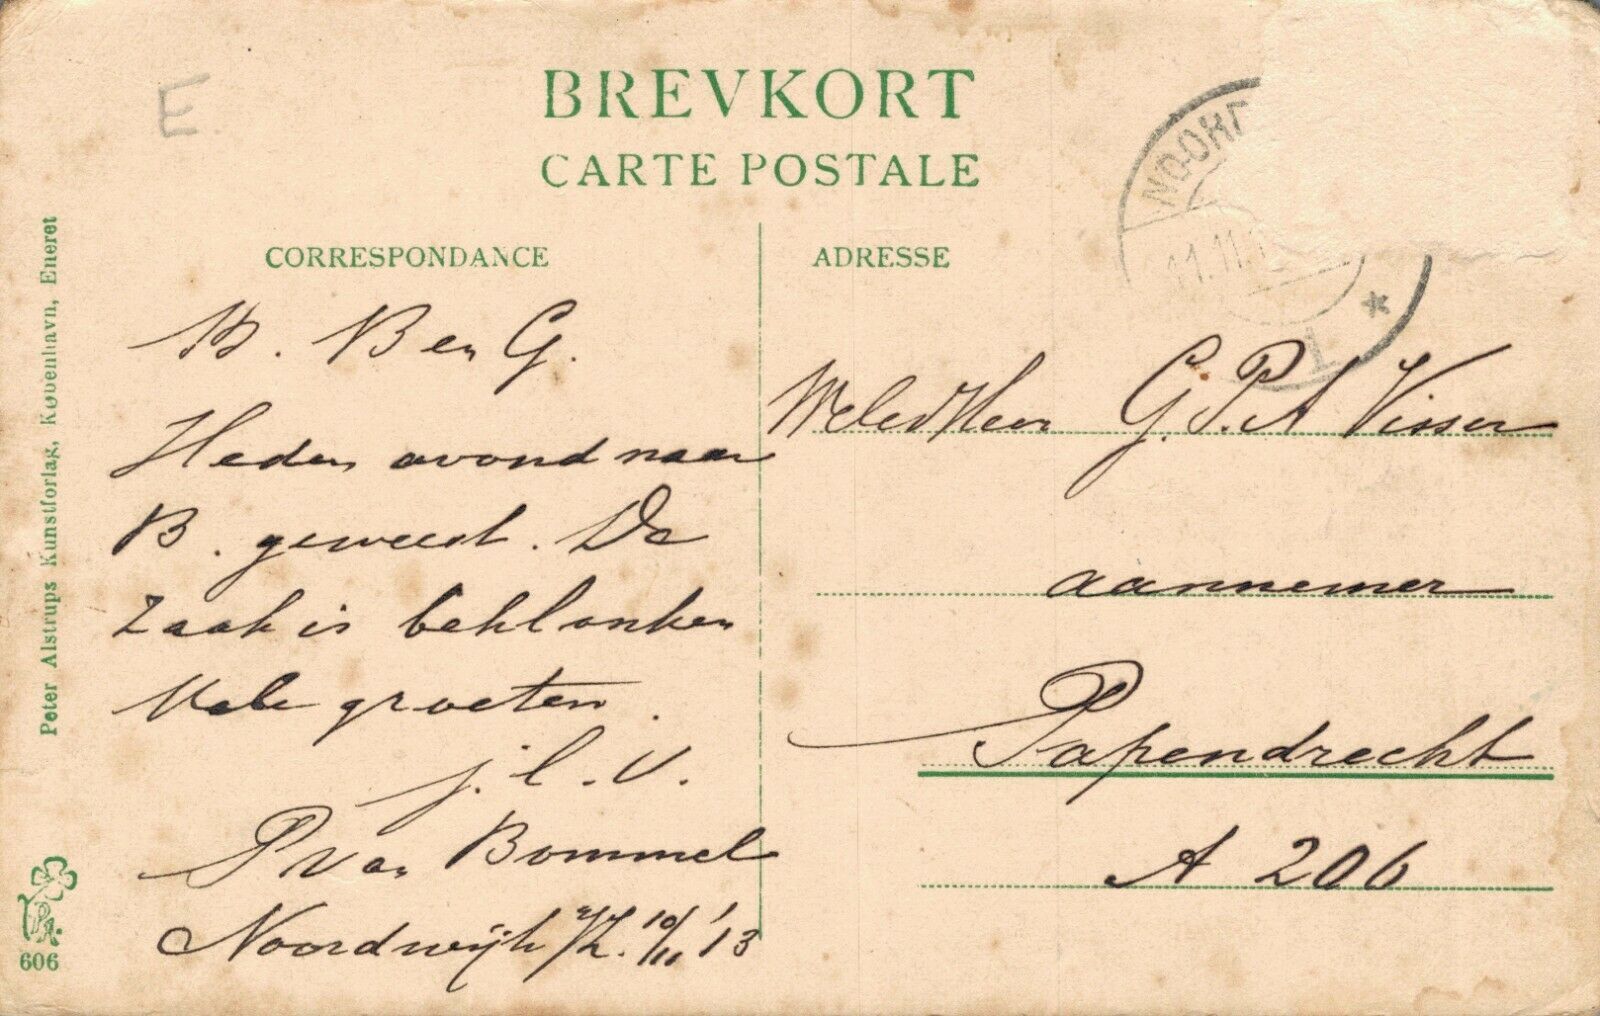 E
BREVKORT
CARTE POSTALE
CORRESPONDANCE
ADRESSE
NOORD
11.11.1
1 *
W. B en G.
Heden avond naar
B. geweest. De
Zaak is beklonken
Vele groeten.
j. l. V.
P van Bommel
Noordwijk a/Z. 10/11 '13
WelEdHeer G. P. A Visser
aannemer
Papendrecht
A 206
Peter Alstrups Kunstforlag, Kobenhavn, Eneret
PA.
606